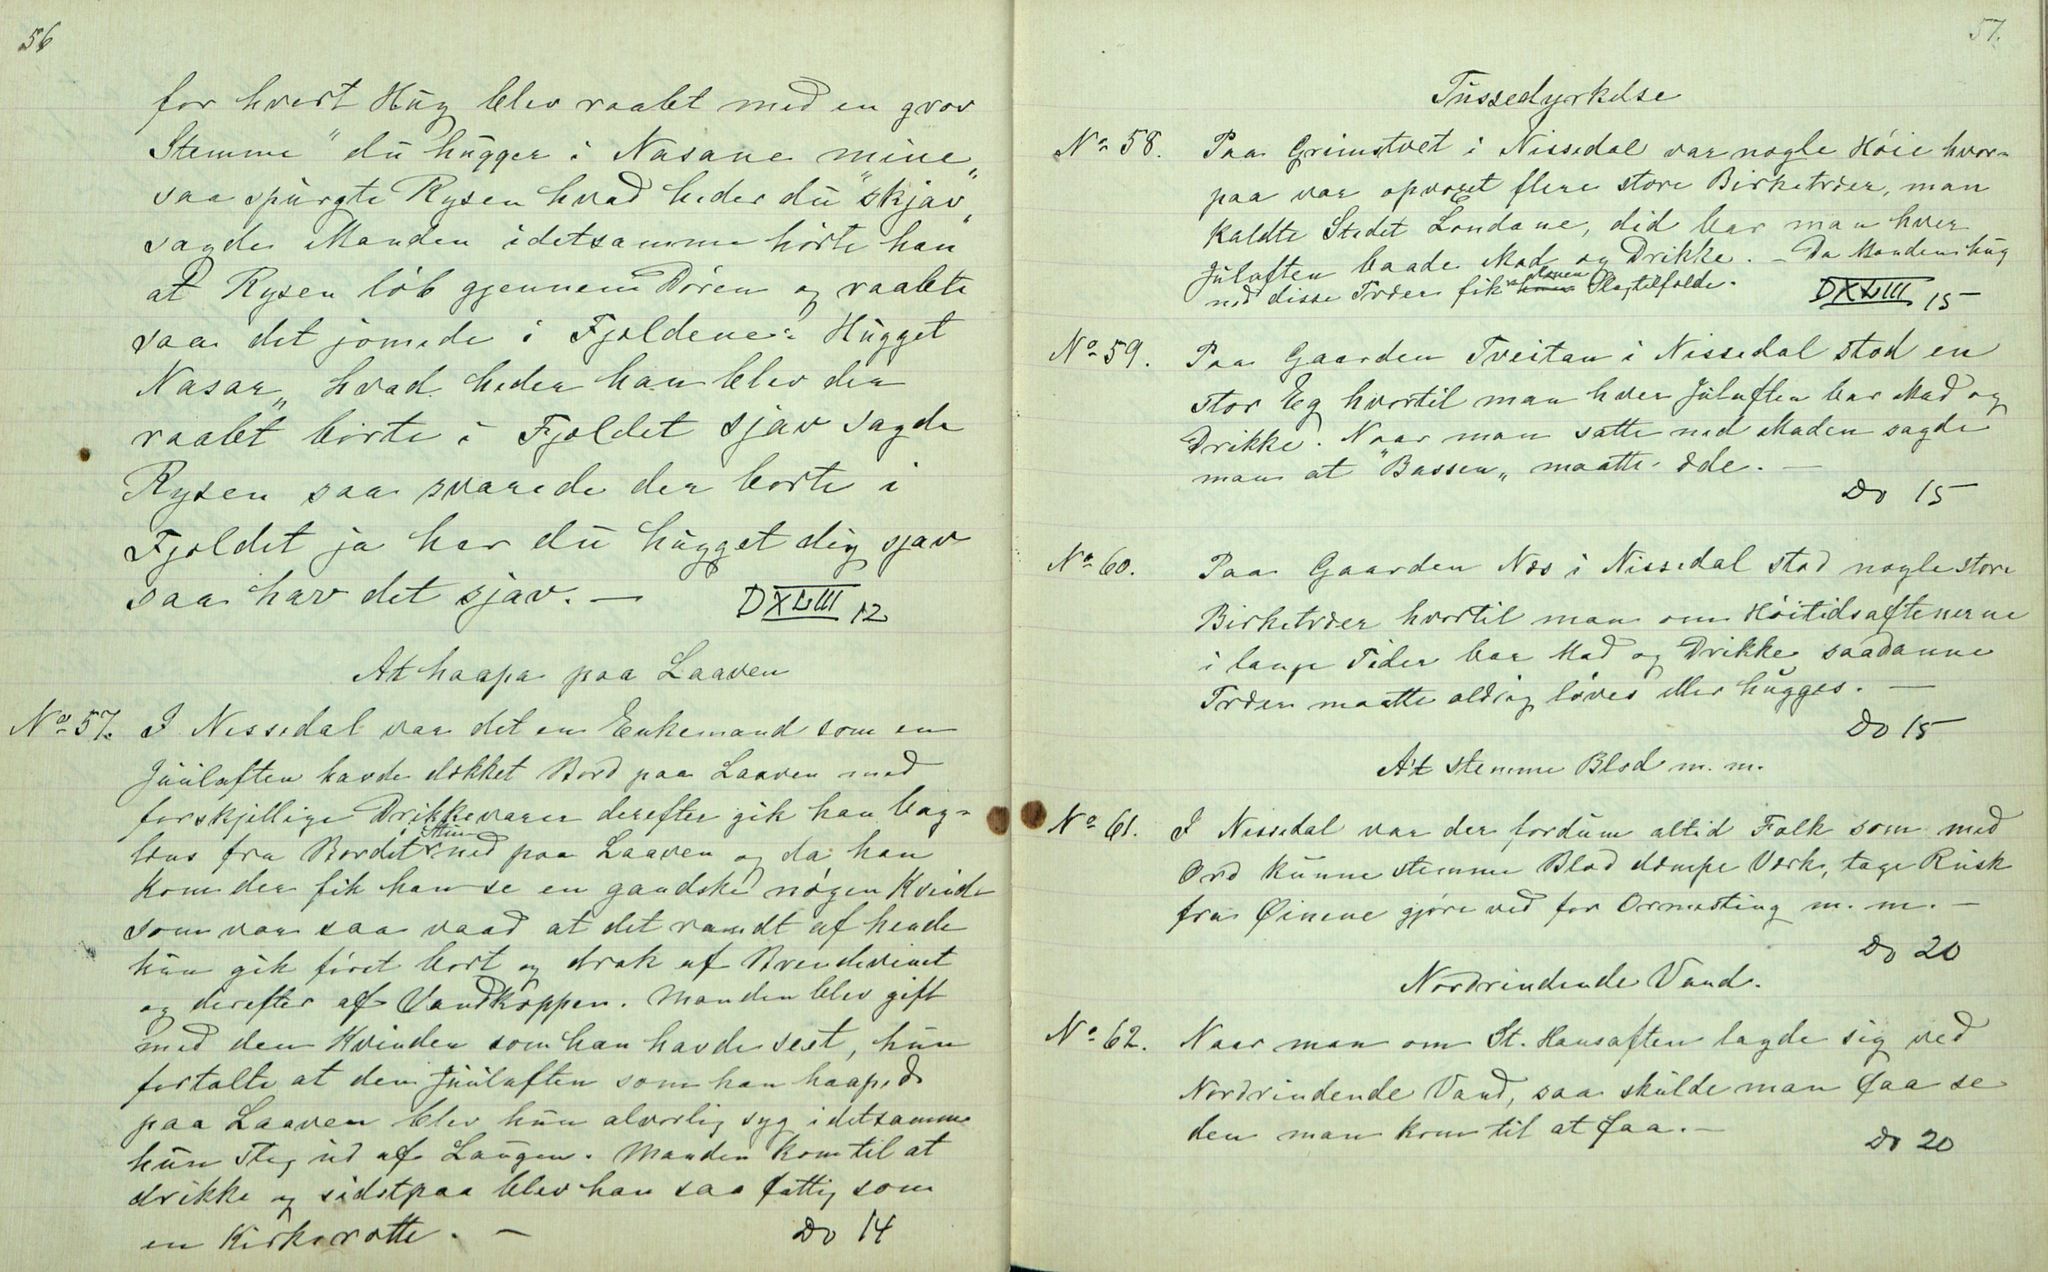 56
for hvert Hug blev raabt med en grov
Stemme "du hugger i Nasane mine„
saa spurgte Rysen hvad heder du "skjav„
sagde Manden idetsamme hørte han
at Rysen løb gjennem Døren og raabte
saa det jomede i Fjeldene: Hugget
Nasar„ hvad heder han blev der
raabt borte i Fjeldet sjav sagde
Rysen saa svarede der borte i
Fjeldet ja har du hugget dig sjav
saa hav det sjav. —
DXLIII 12
At haapa paa Laaven
No 57. I Nissedal var det en Enkemand som en
Juulaften havde dækket Bord paa Laaven med
forskjellige Drikkevarer derefter gik han bag-
læns fra Bordet ned paa Laaven og da han
kom der fik han se en gandske nøgen Kvinde
som var saa vaad at det randt af hende
hun gik først bort og drak af Brændevinet
og derefter af Vandkoppen. Manden blev gift
med den Kvinden som han havde seet, hun
fortalte at den Juulaften som han haaped
paa Laaven blev hun alvorlig syg idetsamme
hun steg ud af Laugen. Manden kom til at
drikke og sidstpaa blev han saa fattig som
en Kirkerotte. —
Do 14
57.
Tussedyrkelse
No 58. Paa Grimstvet i Nissedal var nogle Høie hvor-
paa var opvoxet flere store Birketræer, man
kaldte Stedet Londane, did bar man hver
Juleaften baade Mad og Drikke. — Da Manden hug
ned disse Træer fik Konen Slagtilfælde.
DXLIII 15
No 59. Paa Gaarden Tveitan i Nissedal stod en
stor Eg hvortil man hver Juleaften bar Mad og
Drikke. Naar man satte ned Maden sagde
man at "Bassen„ maatte æde. —
Do 15
No 60. Paa Gaarden Næs i Nissedal stod nogle store
Birketræer hvortil man om Høitidsaftenerne
i lange Tider bar Mad og Drikke, saadanne
Træer maatte aldrig løves eller hugges. —
Do 15
At stemme Blod m. m.
No 61. I Nissedal var der fordum altid Folk som med
Ord kunne stemme Blod dæmpe Værk, tage Rusk
fra Øinene gjøre ved for Ormesting m. m. —
Do 20
Nordrindende Vand.
No 62. Naar man om St. Hansaften lagde sig ved
Nordrindende Vand, saa skulde man faa se
den man kom til at faa. —
Do 20